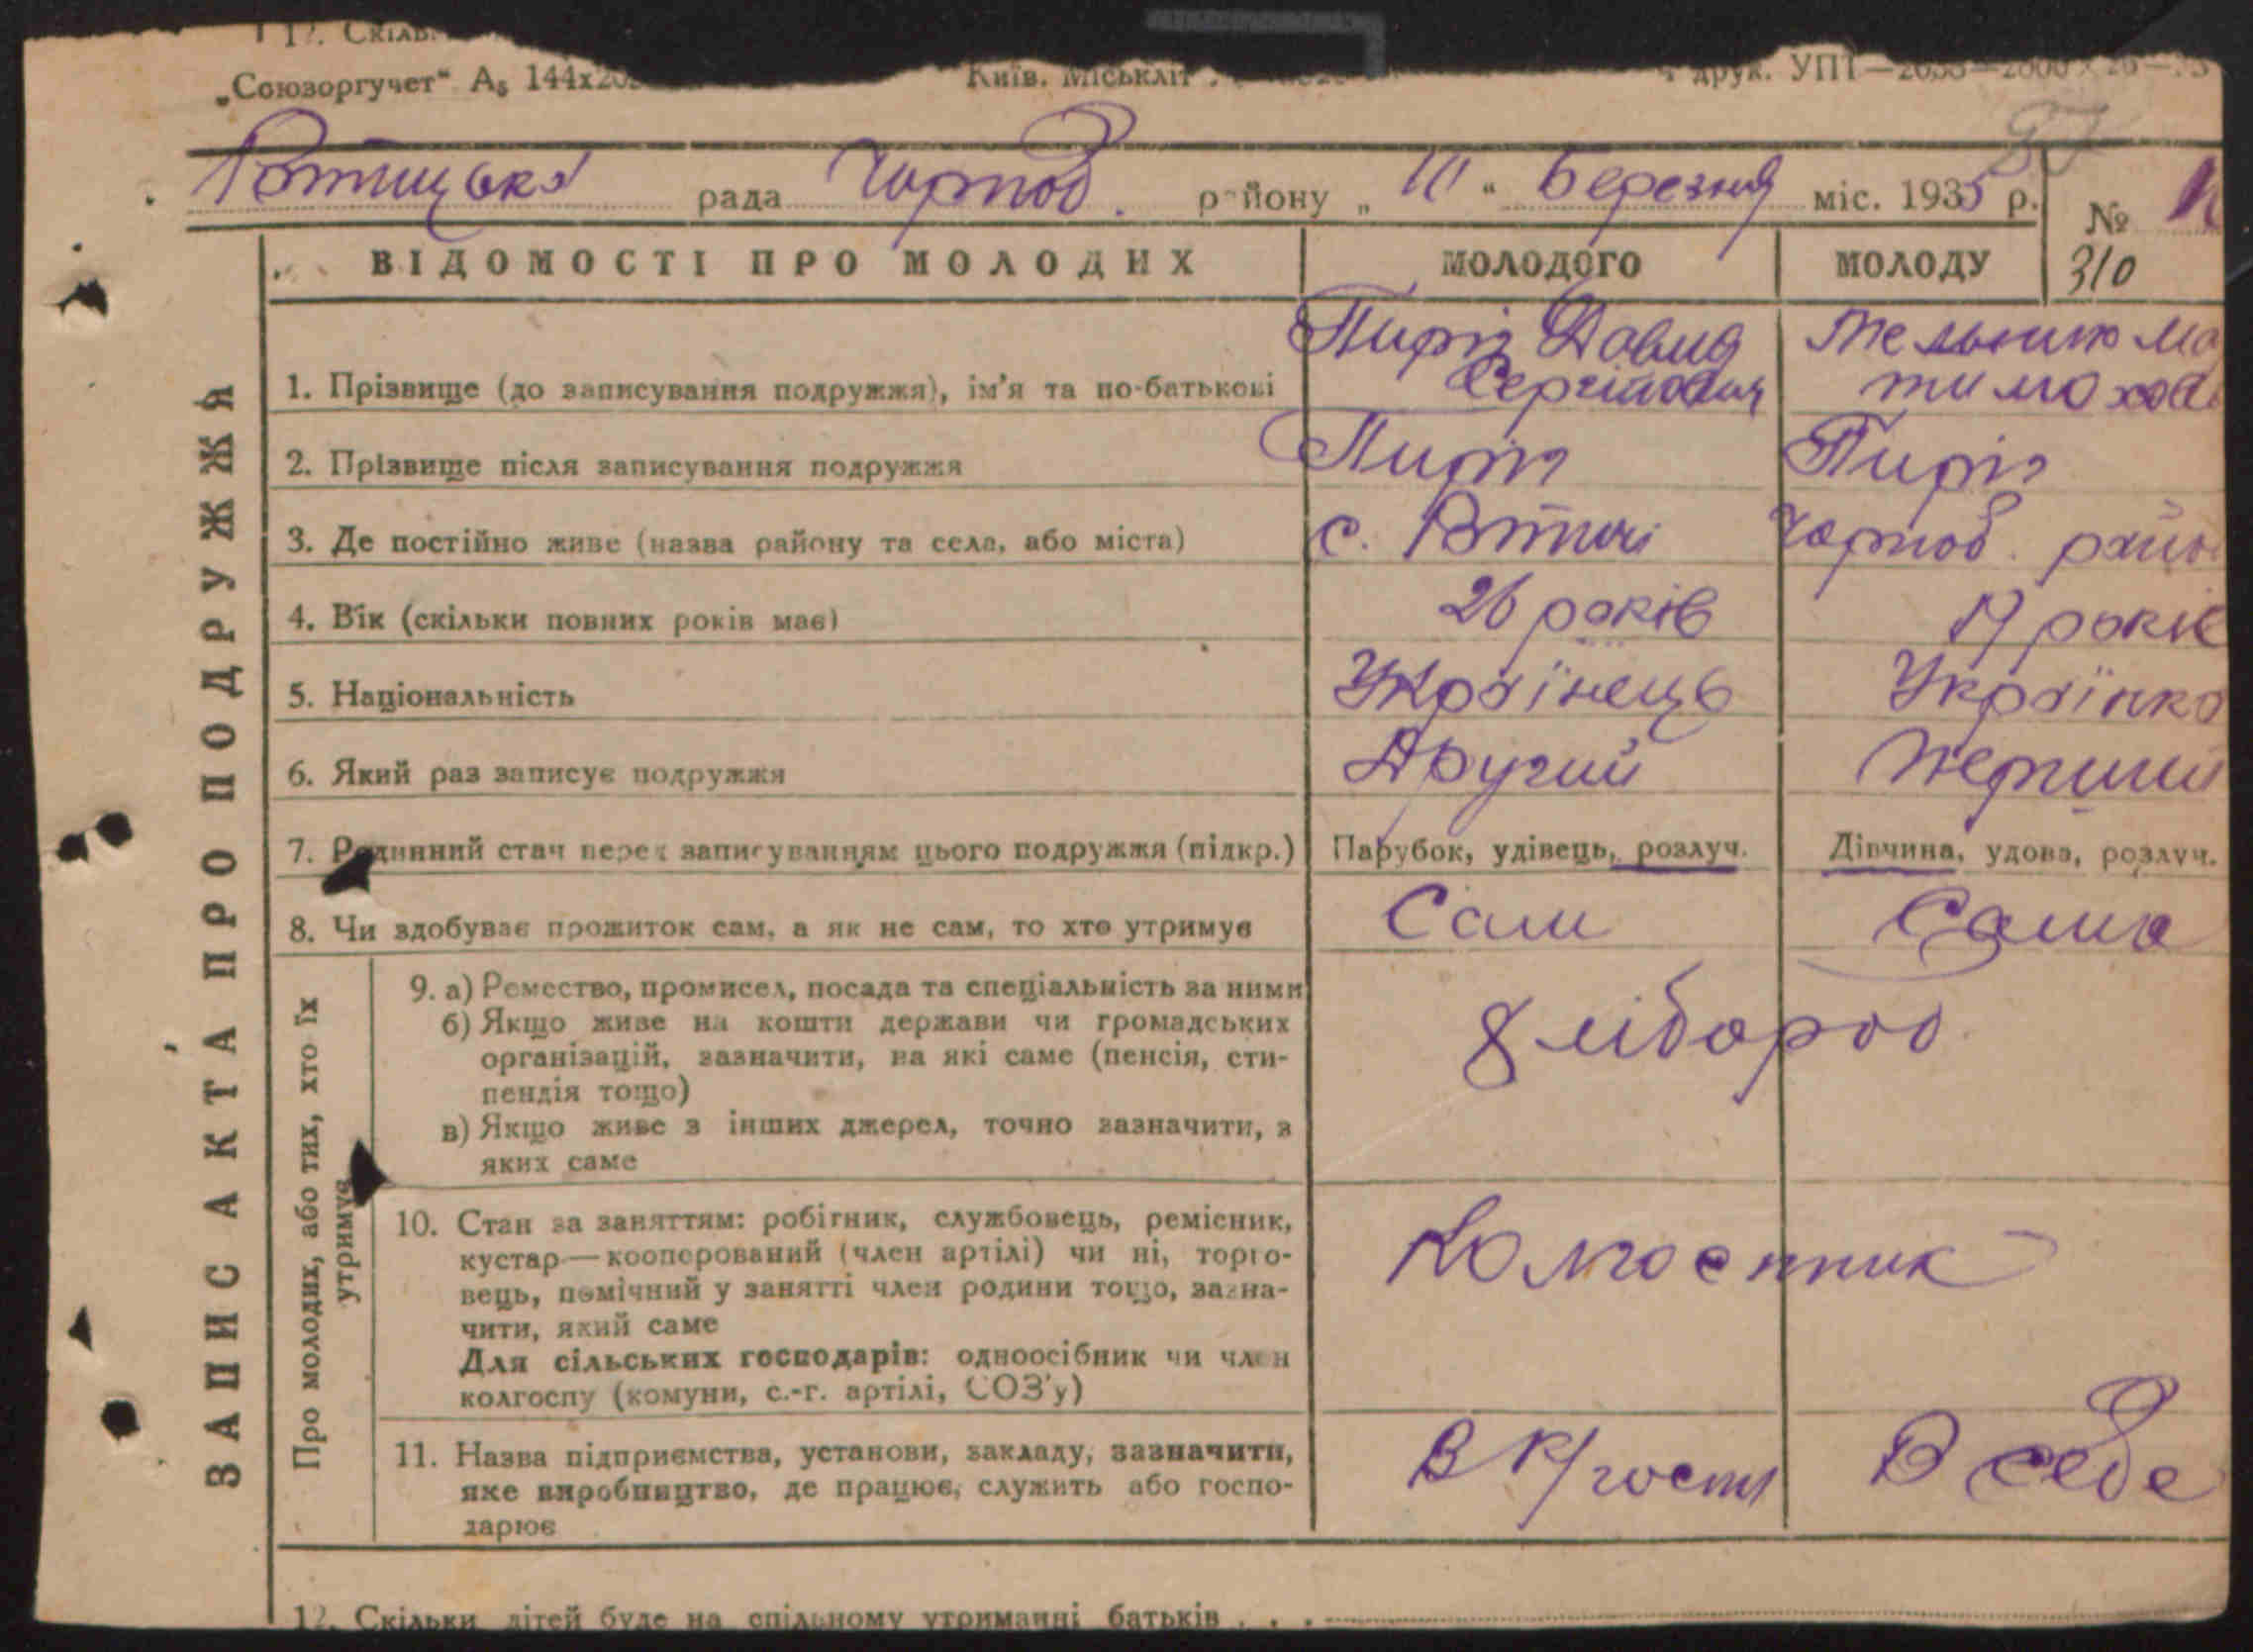 17. Скільк
„Союзоргучет“ А₅ 144х20
Київ. Міськліт
друк. УПТ—
37
рада Чорноб. району „ “ Березня міс. 1935 р.
№
310
ВІДОМОСТІ ПРО МОЛОДИХ МОЛОДОГО МОЛОДУ
ЗАПИС АКТА ПРО ПОДРУЖЖЯ
1. Прізвище (до записування подружжя), ім’я та по-батькові Давид Сергійович Мельник
2. Прізвище після записування подружжя
3. Де постійно живе (назва району та села, або міста) с. Чорноб. район
4. Вік (скільки повних років має) 26 років 19 років
5. Національність Українець Українка
6. Який раз записує подружжя Другий Перший
7. Родинний стан перед записуванням цього подружжя (підкр.) Парубок, удівець, розлуч. Дівчина, удова, розлуч.
8. Чи здобуває прожиток сам, а як не сам, то хто утримує Сам Сама
Про молодих, або тих, хто їх
утримує
9. а) Ремество, промисел, посада та спеціальність за ними
б) Якщо живе на кошти держави чи громадських
організацій, зазначити, на які саме (пенсія, сти-
пендія тощо)
в) Якщо живе з інших джерел, точно зазначити, з
яких саме
Хлібороб
10. Стан за заняттям: робітник, службовець, ремісник,
кустар—кооперований (член артілі) чи ні, торго-
вець, помічний у занятті член родини тощо, зазна-
чити, який саме
Для сільських господарів: одноосібник чи член
колгоспу (комуни, с.-г. артілі, СОЗ’у)
Колгоспник
11. Назва підприємства, установи, закладу, зазначити,
яке виробництво, де працює, служить або госпо-
дарює
В к/госпі В себе
12. Скільки дітей буде на спільному утриманні батьків . . .